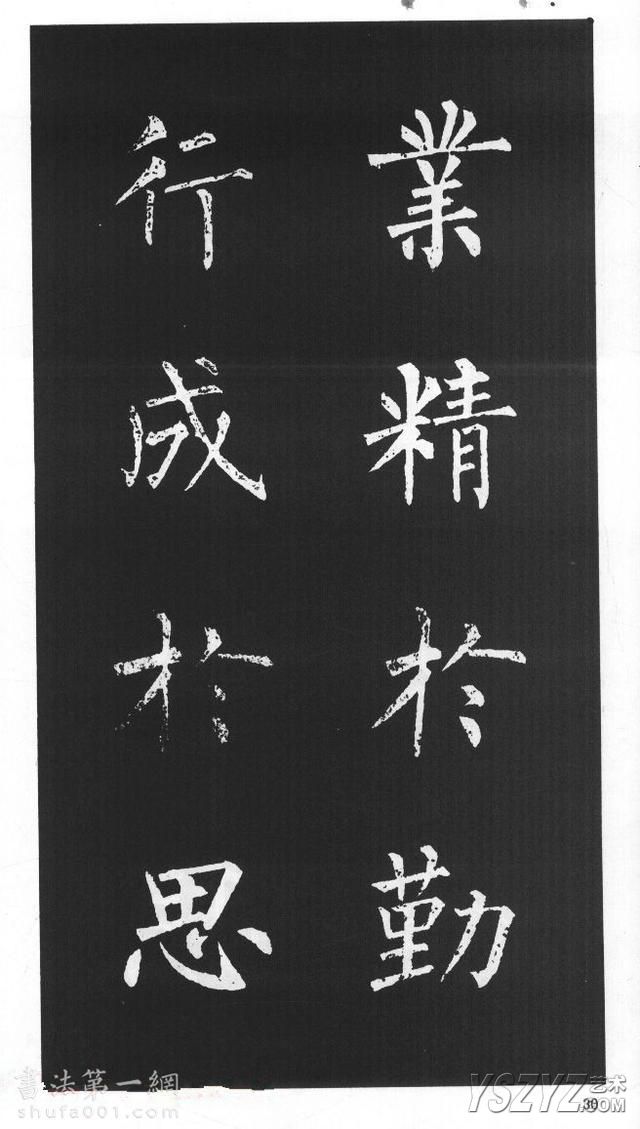 業精於勤
行成於思
書法第一網
shufa001.com
YSZYZ艺术
.COM
30